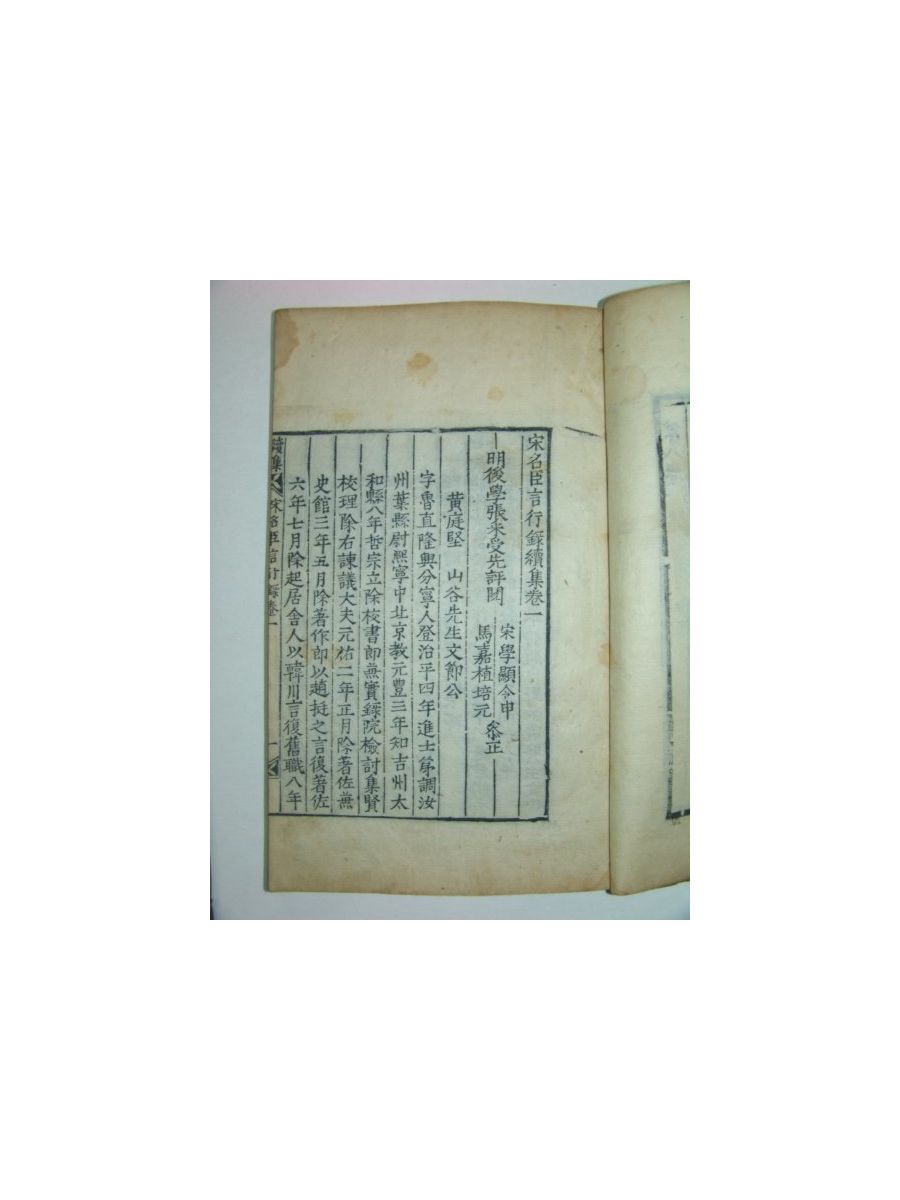 宋名臣言行錄續集卷一
明後學張采受先評閱
宋學顯令申
馬嘉植培元
叅正
黃庭堅 山谷先生文節公
字魯直隆興分寧人登治平四年進士第調汝
州葉縣尉熙寧中北京教元豐三年知吉州太
和縣八年哲宗立除校書郎兼實錄院檢討集賢
校理除右諫議大夫元佑二年正月除著佐兼
史館三年五月除著作郎以趙挺之言復著佐
六年七月除起居舍人以韓川言復舊職八年
續集
宋名臣言行錄卷一
一